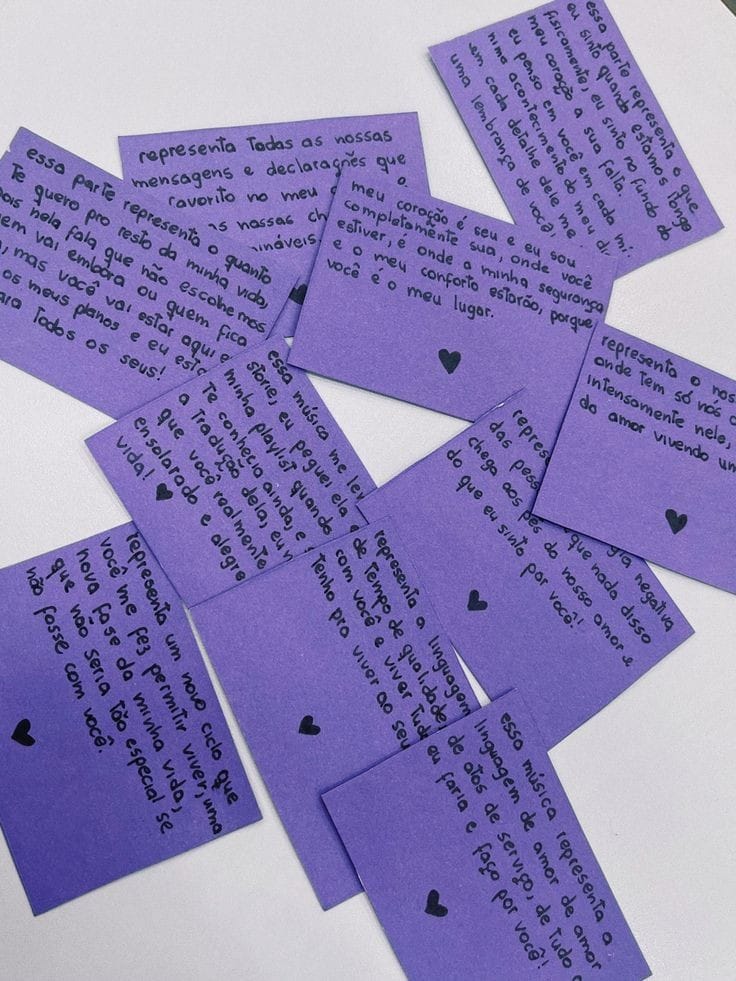 essa parte representa o que
eu sinto quando estamos longe
fisicamente, eu sinto no fundo do
meu coração a sua falta.
eu penso em você em cada mí
nimo acontecimento do meu di
em cada detalhe dele me
uma lembrança de você.
representa todas as nossas
mensagens e declarações que
favorito no meu
as nossas
ináveis
essa parte representa o quanto
te quero pro resto da minha vida,
pois nela fala que não escolhemos
quem vai embora ou quem fica
mas você vai estar aqui
os meus planos e eu
para todos os seus!
meu coração é seu e eu sou
completamente sua, onde você
estiver, é onde a minha segurança
e o meu conforto estarão, porque
você é o meu lugar.
representa o
onde tem só nós
intensamente nele,
do amor vivendo
essa música me
storie, eu peguei ela
minha playlist quando
te conhecia ainda, e
a tradução dela, eu
que você realmente
ensolarado e alegre
vida!
das
negativa
que nada disso
chega aos pés do nosso amor e
do que eu sinto por você!
representa um novo ciclo que
você me fez permitir viver, uma
nova fase da minha vida,
que não seria tão especial se
não fosse com você.
representa a linguagem
de tempo de qualidade
com você e viver
tenho pra viver ao
essa música representa a
linguagem de amor de amor
de atos de serviço, de tudo
eu faria e faço por você!